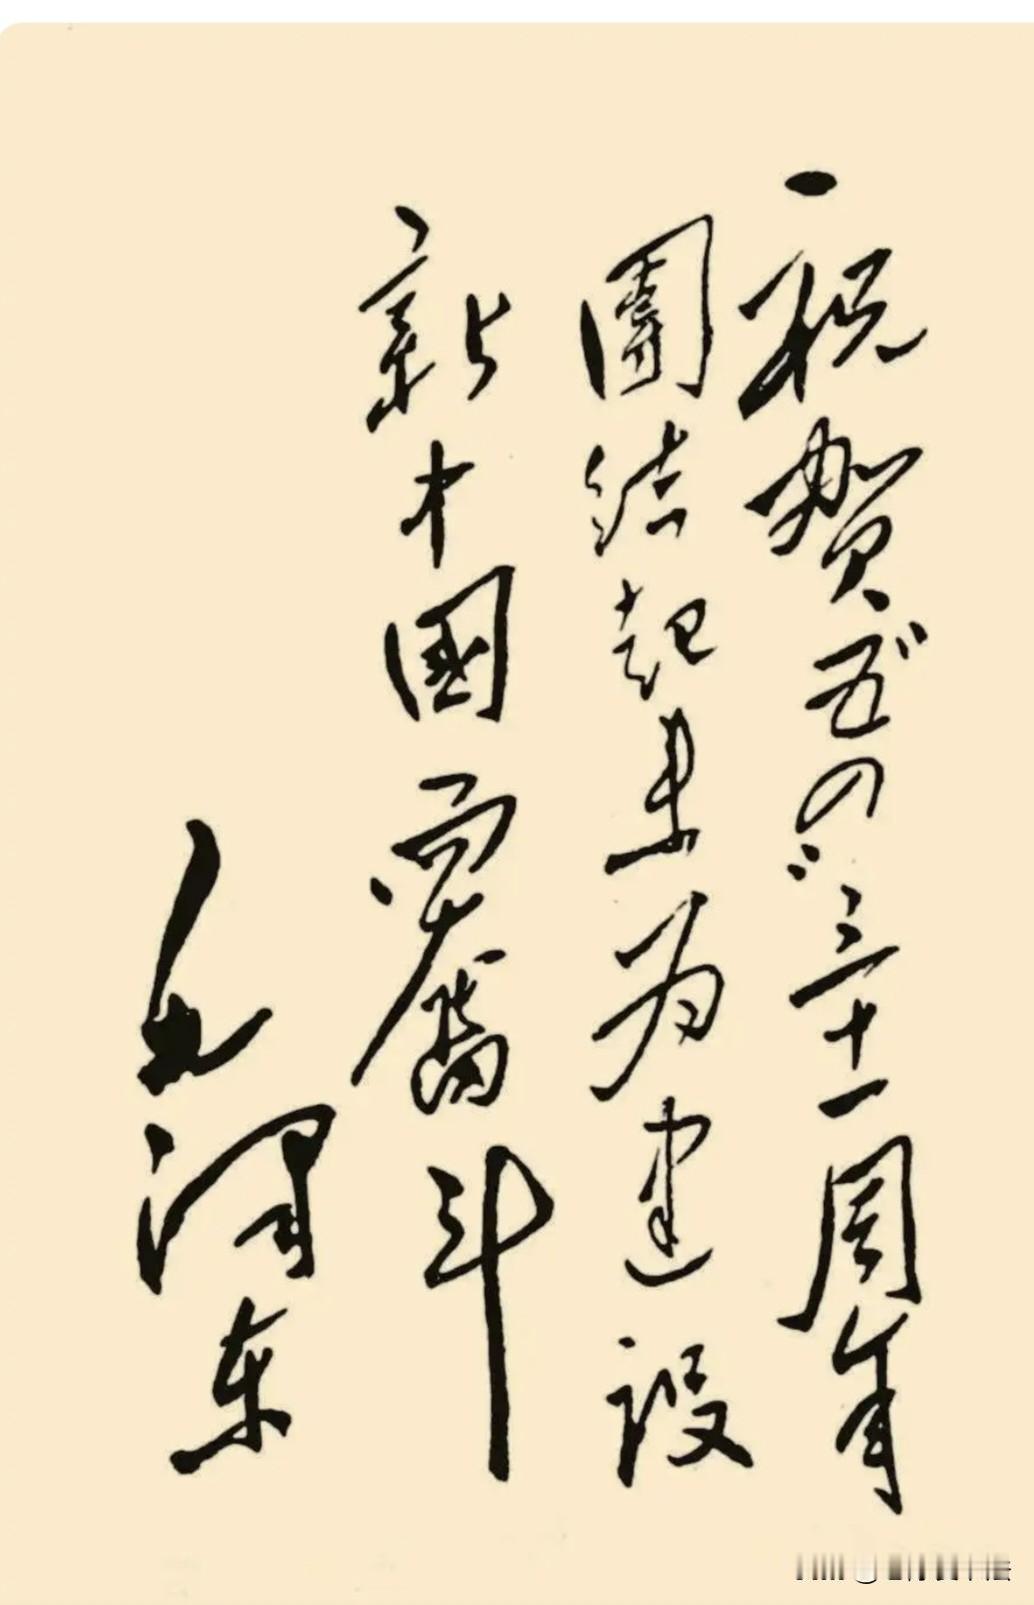 祝贺“五四”三十一周年
團结起来为建設
新中國而奮斗
毛澤东